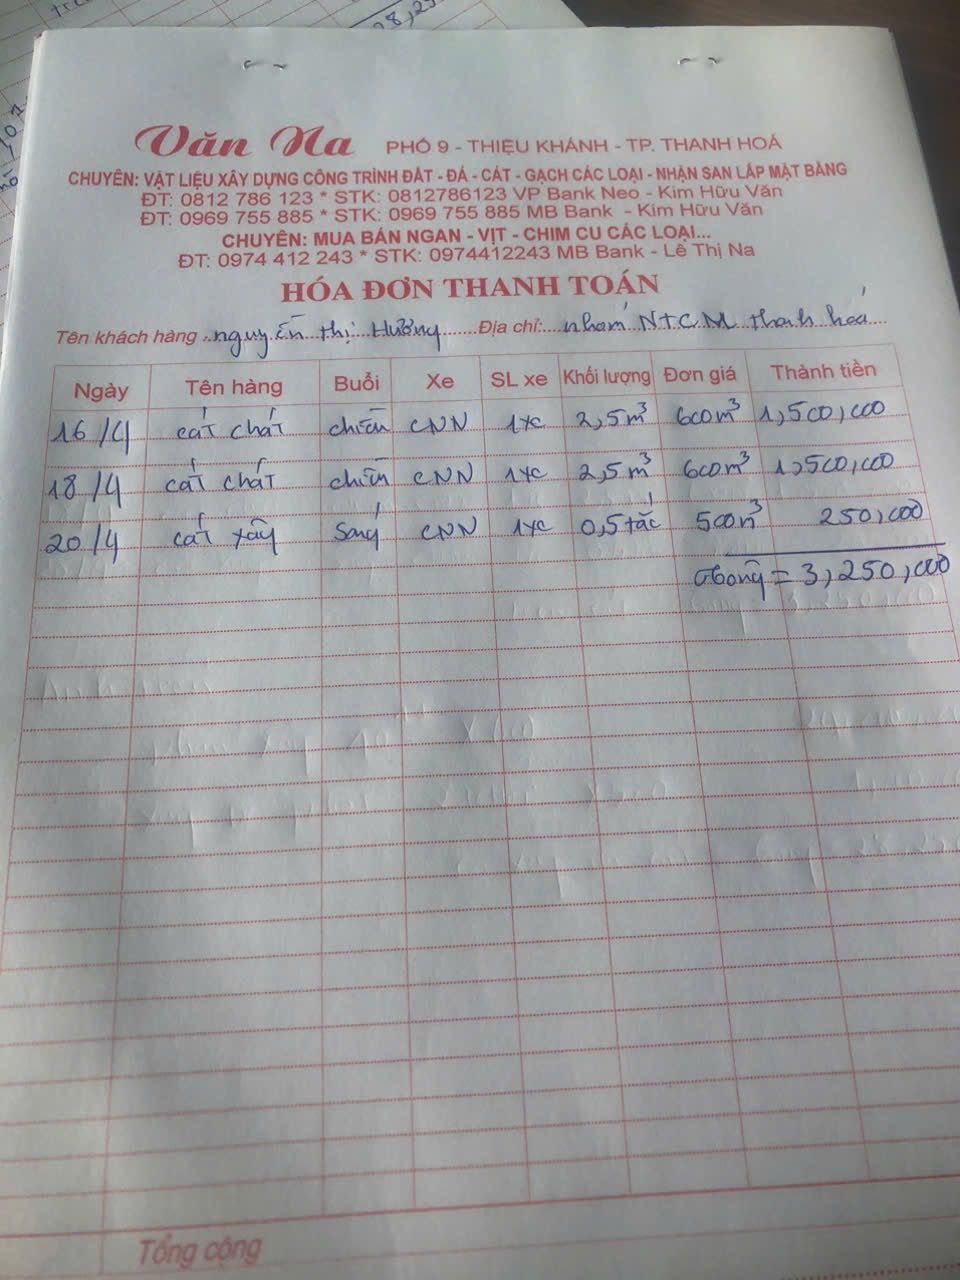 Văn Na PHỐ 9 - THIỆU KHÁNH - TP. THANH HOÁ
CHUYÊN: VẬT LIỆU XÂY DỰNG CÔNG TRÌNH ĐẤT - ĐÁ - CÁT - GẠCH CÁC LOẠI - NHẬN SAN LẤP MẶT BẰNG
ĐT: 0812 786 123 * STK: 0812786123 VP Bank Neo - Kim Hữu Văn
ĐT: 0969 755 885 * STK: 0969 755 885 MB Bank - Kim Hữu Văn
CHUYÊN: MUA BÁN NGAN - VỊT - CHIM CU CÁC LOẠI...
ĐT: 0974 412 243 * STK: 0974412243 MB Bank - Lê Thị Na
HÓA ĐƠN THANH TOÁN
Tên khách hàng nguyễn thị Hương Địa chỉ: NTCM thanh hóa
Ngày Tên hàng Buổi Xe SL xe Khối lượng Đơn giá Thành tiền
16/4 cát chát chiều CNN 1xc 2,5m³ 600m³ 1,500,000
18/4 cát chát chiều CNN 1xc 2,5m³ 600m³ 1,500,000
20/4 cát xây sáng CNN 1xc 0,5 500m³ 250,000
= 3,250,000
Tổng cộng